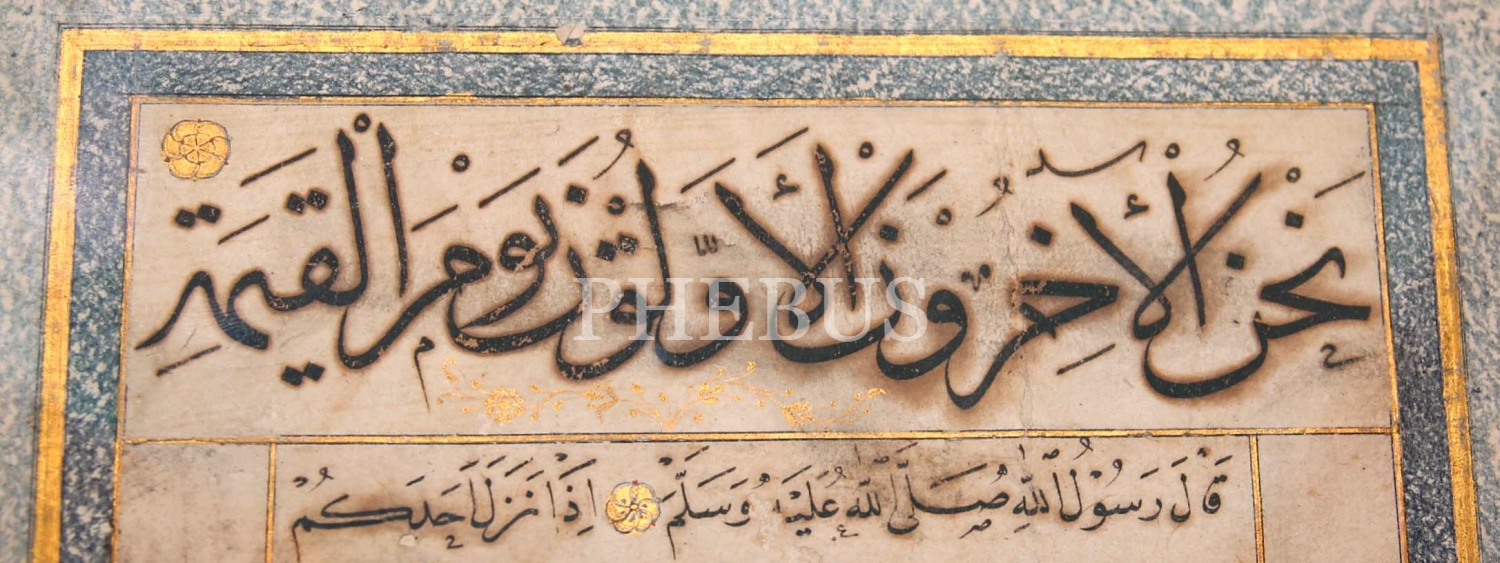 نَحْنُ الْاٰخِرُونَ الْأَوَّلُونَ يَوْمَ الْقِيٰمَةِ
PHEBUS
قَالَ رَسُولُ اللّٰهِ صَلَّى اللّٰهُ عَلَيْهِ وَسَلَّمَ اِذَا نَزَلَ اَحَدُكُمْ